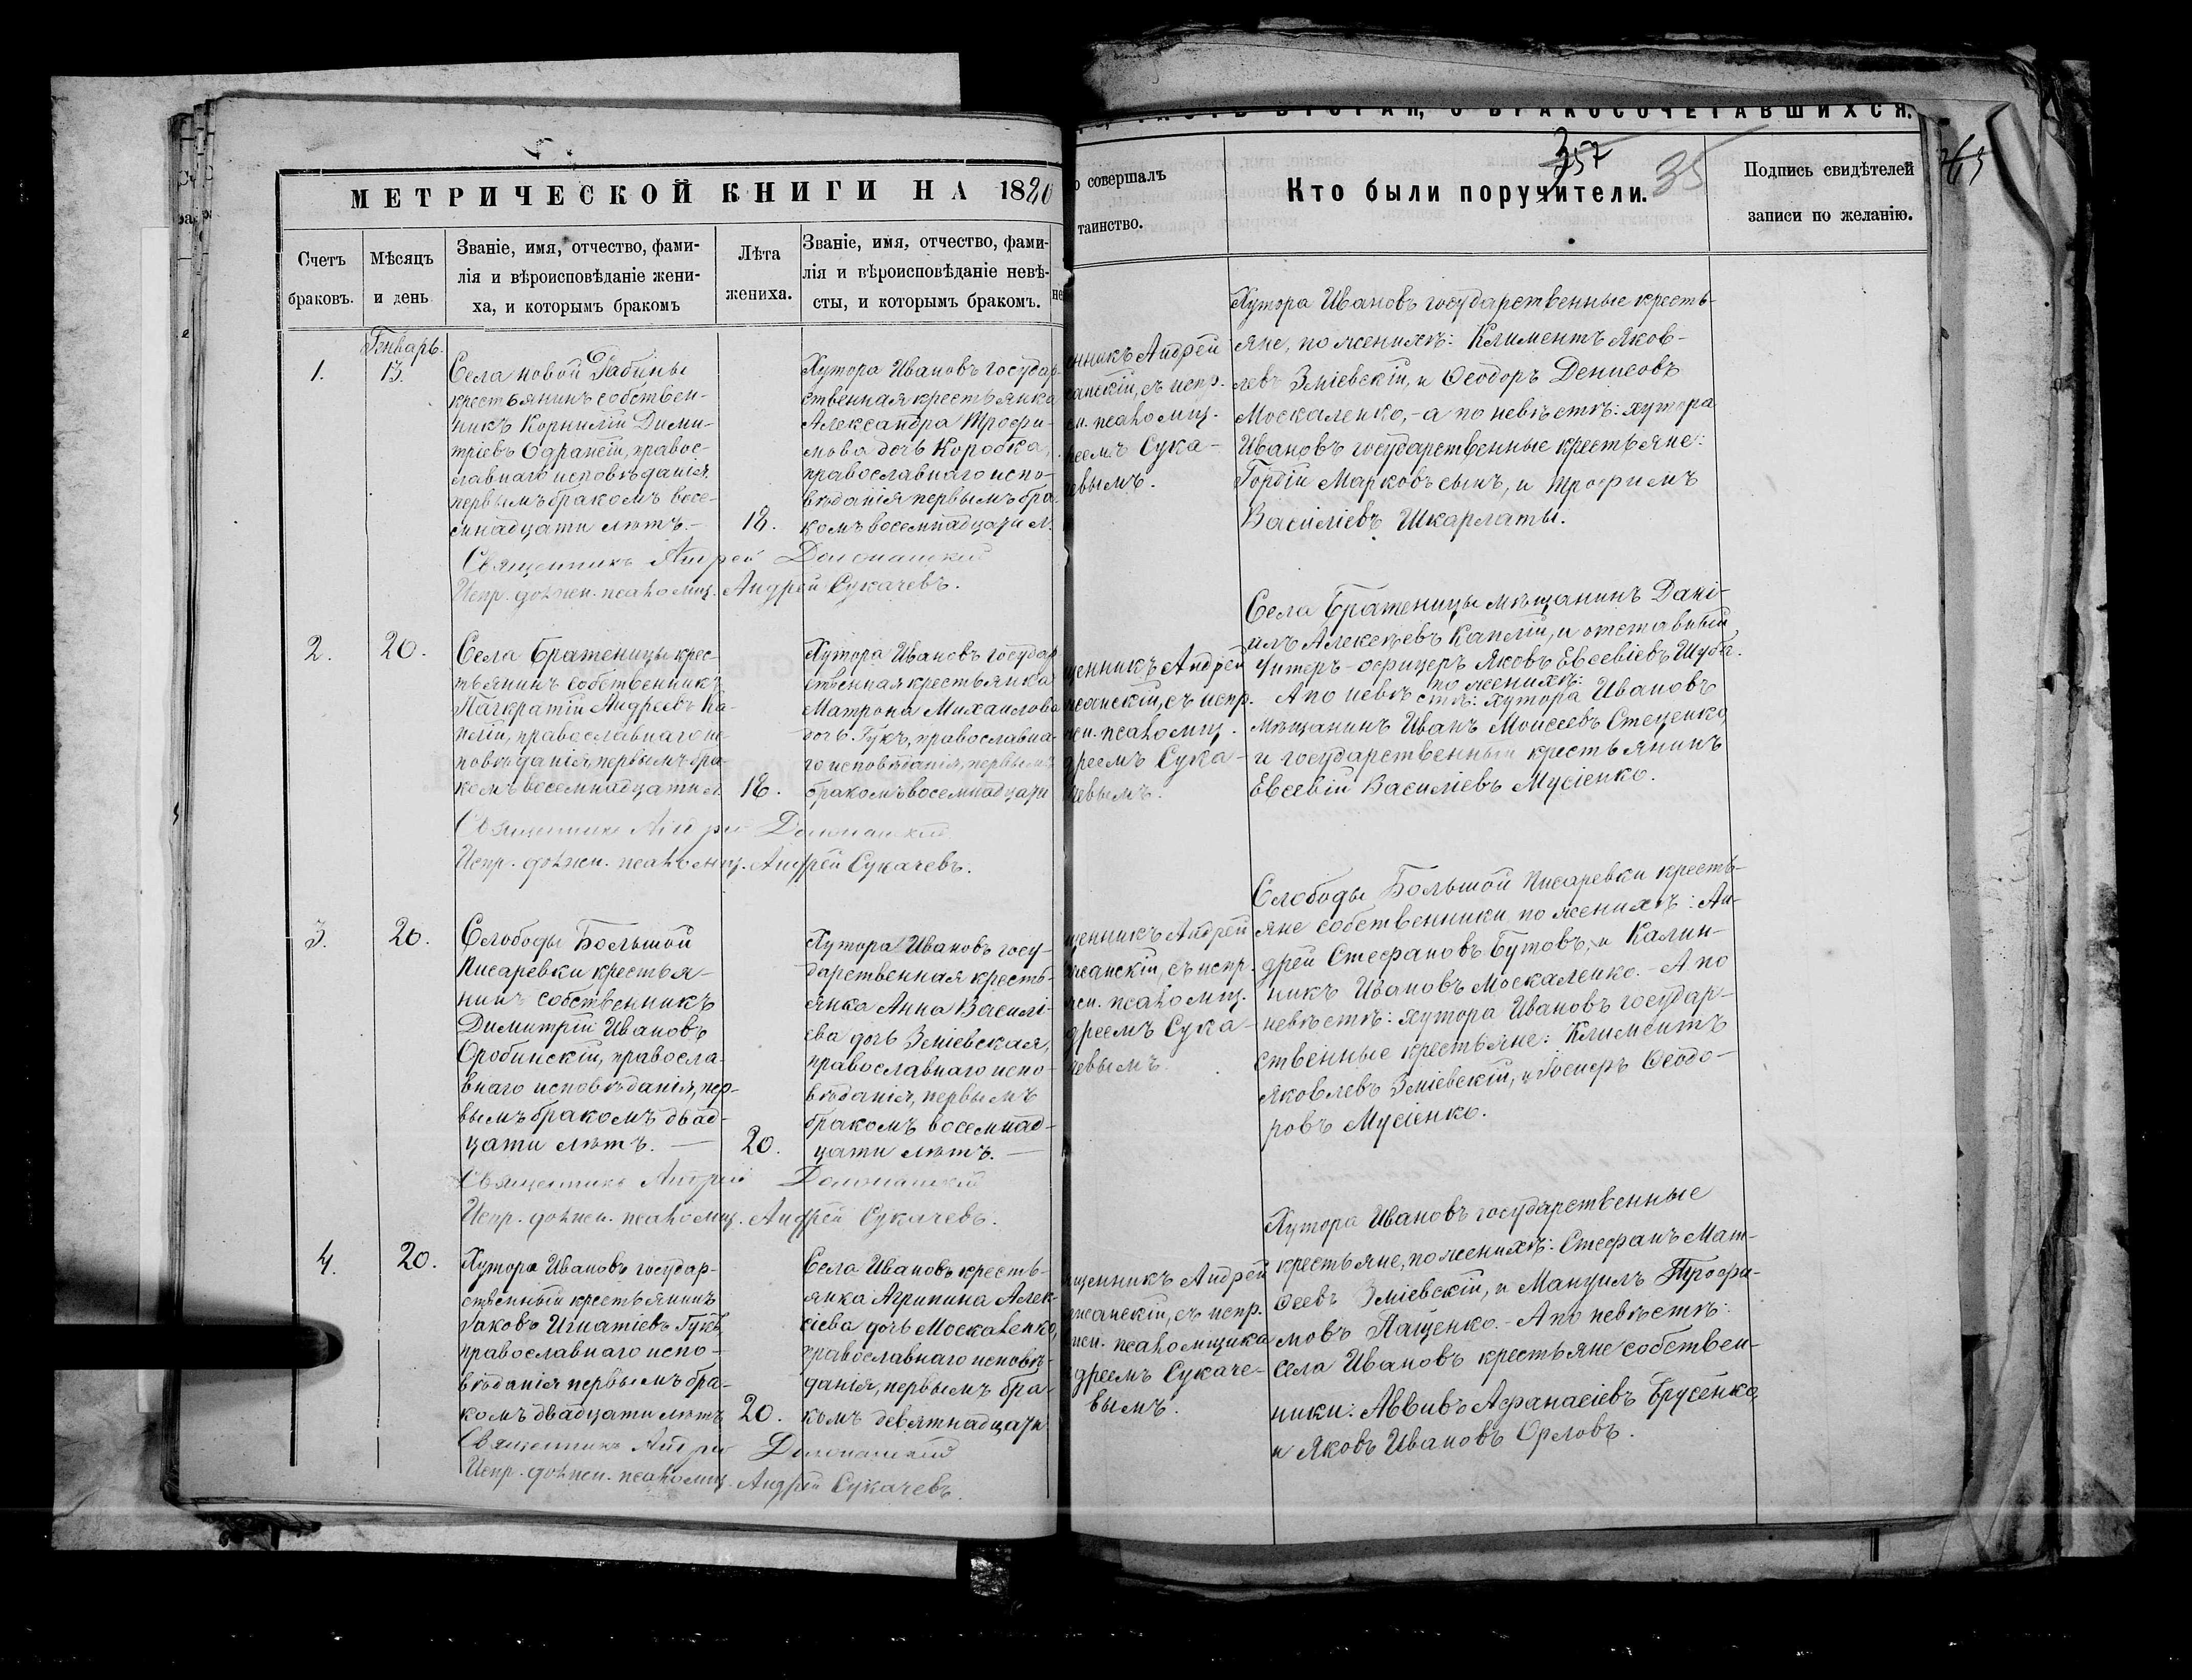 МЕТРИЧЕСКОЙ КНИГИ НА 1880
Счетъ браковъ.
Мѣсяцъ и день
Званіе, имя, отчество, фами-
лія и вѣроисповѣданіе жени-
ха, и которымъ бракомъ
Лѣта
жениха.
Званіе, имя, отчество, фами-
лія и вѣроисповѣданіе невѣ-
сты, и которымъ бракомъ.
Генварь.
1.
13.
Села новой Рабины
крестьянинъ собствен-
никъ Корнилій Дими-
тріевъ
правос-
лавнаго исповѣданія
первымъ бракомъ восе-
мнадцати лѣтъ.
18.
Хутора Ивановъ государ-
ственная крестьянка
Александра Трофи-
мова дочь Коробка,
православнаго испо-
вѣданія первымъ бра-
комъ восемнадцати л.
Священникъ Андрей
Испр. должн. псаломщ. Андрей Сукачевъ.
2.
20.
Села Братеницы крес-
тьянинъ собственникъ
Панкратій Андреевъ Ка-
плій, православнаго ис-
повѣданія, первымъ бра-
комъ восемнадцати л.
18.
Хутора Ивановъ государ
ственная крестьянка
Матрона Михаилова
дочь Гукъ, православна-
го исповѣданія, первымъ
бракомъ восемнадцати
Священникъ Андрей
Испр. должн. псаломщ. Андрей Сукачевъ.
3.
20.
Слободы Большой
Писаревки крестья-
нинъ собственникъ
Димитрій Ивановъ
Оробинскій, правосла-
внаго исповѣданія, пер-
вымъ бракомъ двад-
цати лѣтъ.
20.
Хутора Ивановъ госу-
дарственная кресть-
янка Анна Василі-
ева дочь Зміевская,
православнаго испо-
вѣданія, первымъ
бракомъ восемнад-
цати лѣтъ.
Священникъ Андрей
Испр. должн. псаломщ. Андрей Сукачевъ.
4.
20.
Хутора Ивановъ государ-
ственный крестьянинъ
Іаковъ Игнатіевъ Гукъ,
православнаго испо-
вѣданія первымъ бра-
комъ двадцати лѣтъ
20.
Села Ивановъ кресть-
янка Агрипина Алек-
сіева дочь Москаленко,
православнаго исповѣ-
данія, первымъ бра-
комъ девятнадцати
Священникъ Андрей
Испр. должн. псаломщ. Андрей Сукачевъ.
ЧАСТЬ ВТОРАЯ, О БРАКОСОЧЕТАВШИХСЯ.
357
35
о совершалъ
таинство.
Кто были поручители.
Подпись свидѣтелей
записи по желанію.
нникъ Андрей
анскій, съ испр.
н. псаломщ.
реемъ Сука-
чевымъ.
Хутора Ивановъ государственные кресть-
яне, по женихѣ: Климентъ Яков-
левъ Зміевскій, и Ѳеодоръ Денисовъ
Москаленко, - а по невѣстѣ: хутора
Ивановъ государственные крестьяне:
Гордій Марковъ сынъ, и Трофимъ
Василіевъ Шкарлаты.
щенникъ Андрей
жанскій, съ испр.
жн. псаломщ.
дреемъ Сука-
чевымъ.
Села Братеницы мѣщанинъ Дані-
илъ Алексѣевъ Каплій, и отставный
Унтеръ-офицеръ Яковъ Евсевіевъ Шуба.
по женихѣ:
А по невѣстѣ: хутора Ивановъ
мѣщанинъ Иванъ Моисеевъ Стеценко,
и государственный крестьянинъ
Евсевій Василіевъ Мусіенко.
щенникъ Андрей
жанскій, съ испр.
жн. псаломщ.
дреемъ Сука-
чевымъ.
Слободы Большой Писаревки кресть-
яне собственники по женихѣ: Ан-
дрей Стефановъ Бутовъ, и Калин-
никъ Ивановъ Москаленко. - А по
невѣстѣ: хутора Ивановъ государ-
ственные крестьяне: Климентъ
Яковлевъ Зміевскій, и Іосифъ Ѳеодо-
ровъ Мусіенко.
щенникъ Андрей
жанскій, съ испр.
жн. псаломщика
дреемъ Сукаче-
вымъ.
Хутора Ивановъ государственные
крестьяне, по женихѣ: Стефанъ Мат-
ѳеевъ Зміевскій, и Мануилъ Трофи-
мовъ Пащенко. - А по невѣстѣ:
Села Ивановъ крестьяне собствен-
ники: Аввивъ Афанасіевъ Брусенко,
и Яковъ Ивановъ Орловъ.